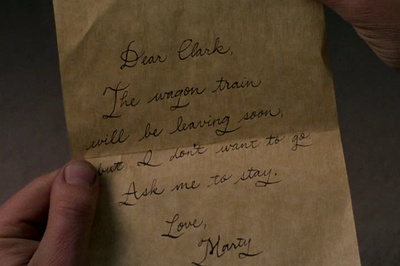 Dear Clark,
The wagon train
will be leaving soon,
but I don't want to go
Ask me to stay.
Love,
Marty